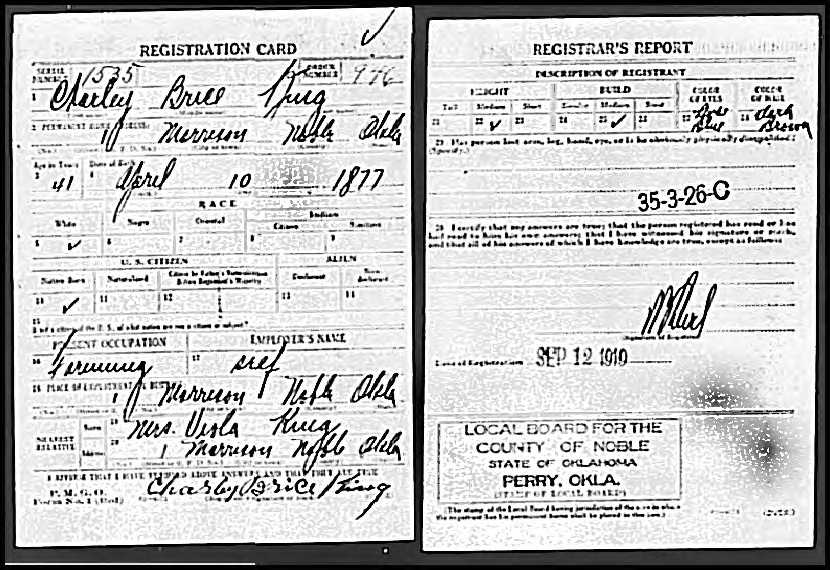 REGISTRATION CARD
SERIAL NUMBER 1535 ORDER NUMBER 976
1 Charley Brice King
2 PERMANENT HOME ADDRESS:
Morrison Noble Okla
Age in Years Date of Birth
3 41 4 April 10 1877
RACE
White Negro Oriental Indian
Citizen Noncitizen
5 ✓ 6 7 8 9
U. S. CITIZEN ALIEN
Native Born Naturalized Citizen by Father's Naturalization Before Registrant's Majority Declarant Non-declarant
10 ✓ 11 12 13 14
15
If not a citizen of the U. S., of what nation are you a citizen or subject?
PRESENT OCCUPATION EMPLOYER'S NAME
16 Farming 17 self
18 PLACE OF EMPLOYMENT OR BUSINESS
Morrison Noble Okla
NEAREST RELATIVE Name 19 Mrs. Viola King
Address 20 Morrison Noble Okla
I AFFIRM THAT I HAVE VERIFIED ABOVE ANSWERS AND THAT THEY ARE TRUE
P. M. G. O.
Form No. 1 (Red) Charley Brice King
REGISTRAR'S REPORT
DESCRIPTION OF REGISTRANT
HEIGHT BUILD COLOR OF EYES COLOR OF HAIR
Tall Medium Short Slender Medium Stout
21 22 ✓ 23 24 25 ✓ 26 27 Blue 28 Dark Brown
29 Has person lost arm, leg, hand, eye, or is he obviously physically disqualified?
(Specify.)
35-3-26-C
30 I certify that my answers are true; that the person registered has read or has
had read to him his own answers; that I have witnessed his signature or mark,
and that all of his answers of which I have knowledge are true, except as follows:
(Signature of Registrar)
Date of Registration SEP 12 1918
LOCAL BOARD FOR THE
COUNTY OF NOBLE
STATE OF OKLAHOMA
PERRY, OKLA.
(STAMP OF LOCAL BOARD)
(The stamp of the Local Board having jurisdiction of the area in which
the registrant has his permanent home shall be placed in this box.)
(OVER)